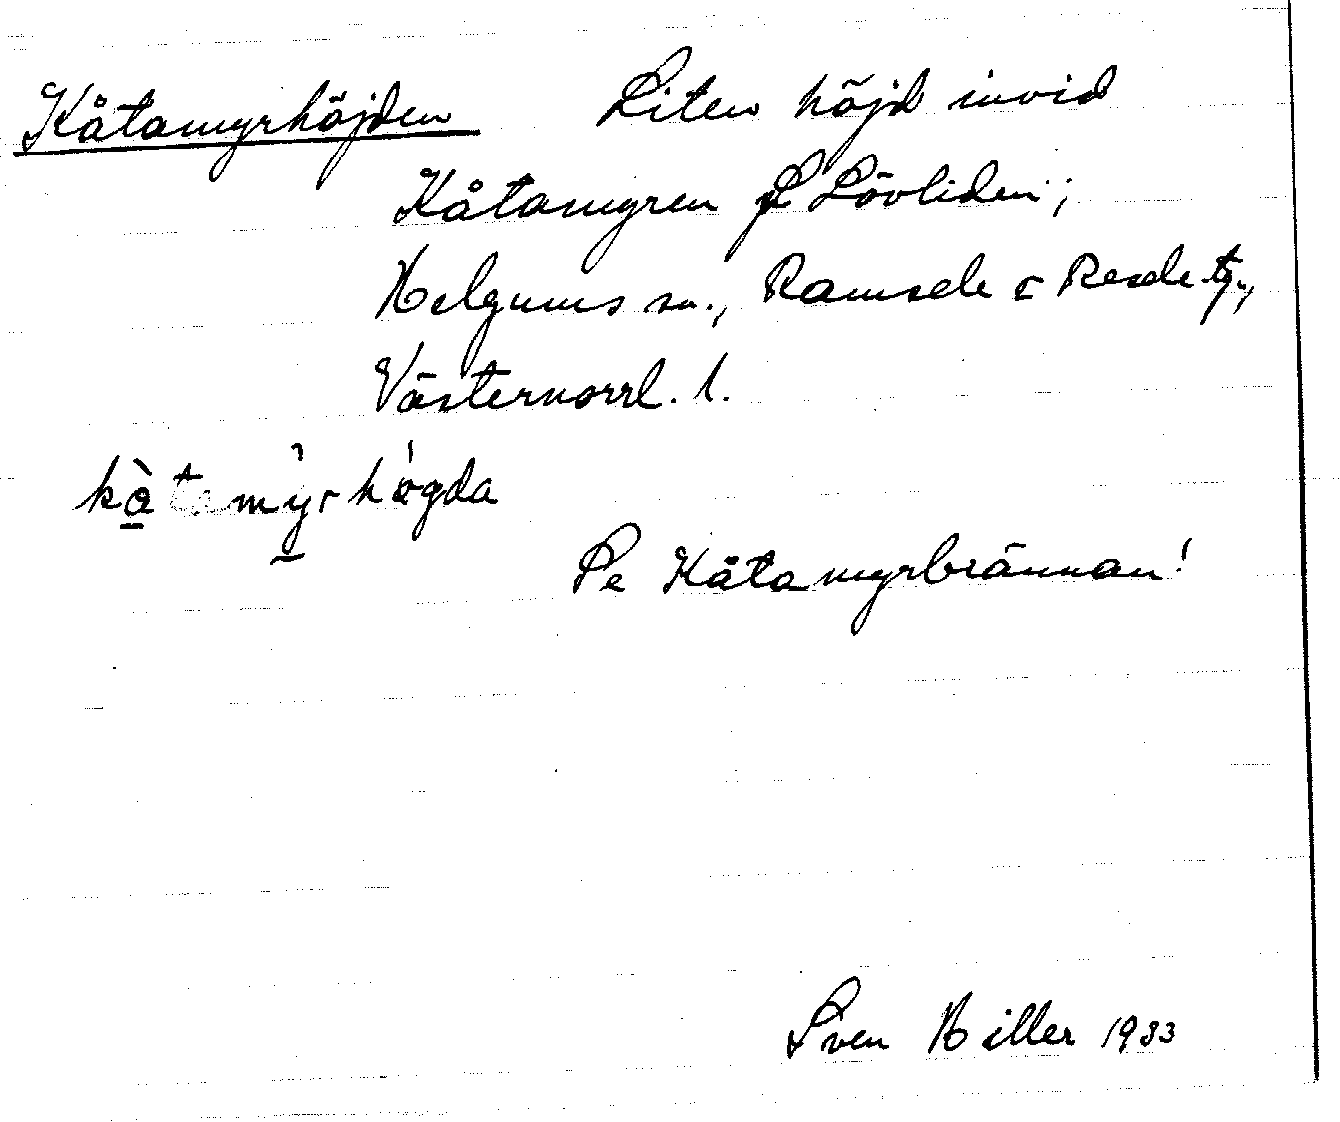 Kåtamyrhöjden Liten höjd invid
Kåtamyren Lövliden;
Helgums sn., Ramsele o Resele tg.,
Västernorrl. l.
kåtamyrhögda
Se Kåtamyrbrännan!
Sven Hiller 1933